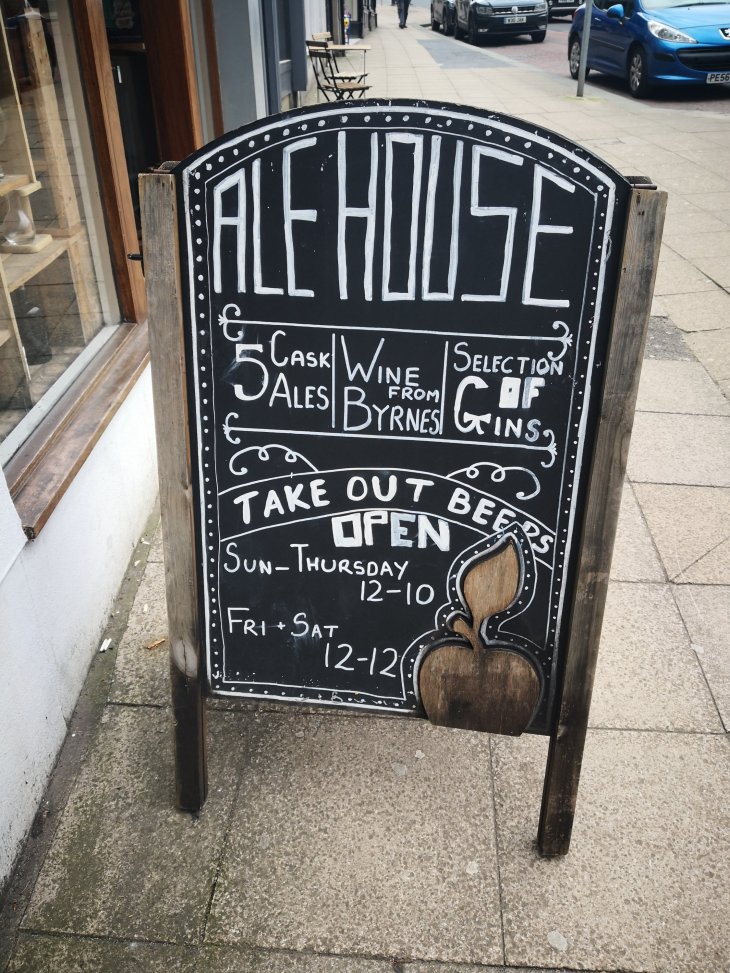 ALE HOUSE
5 CASK ALES
WINE FROM BYRNES
SELECTION OF GINS
TAKE OUT BEERS
OPEN
SUN-THURSDAY
12-10
FRI + SAT
12-12